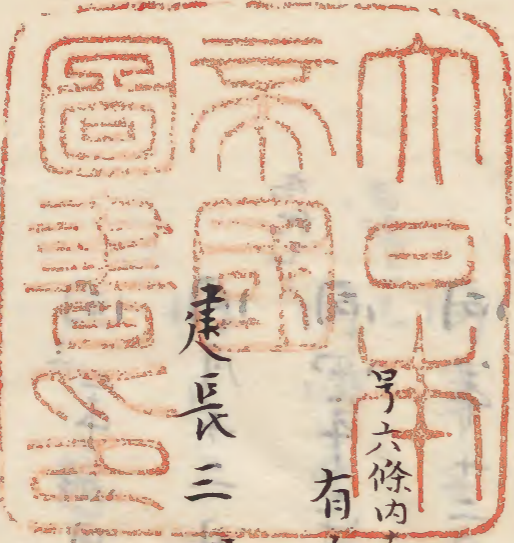 大日本
帝國
圖書印
号六條内
有
建長三